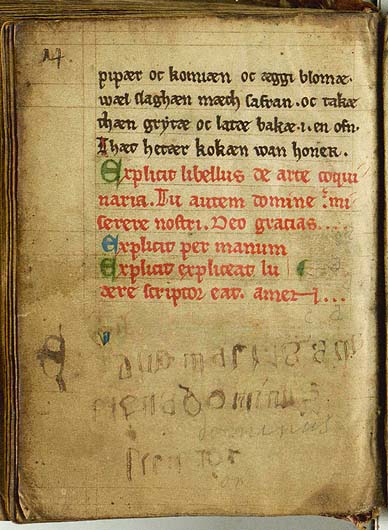 14
pipær oc komiæn oc æggi blomæ.
wæl slaghæn mæth safran. oc takæ
thæn grytæ oc latæ bakæ .i. en ofn.
Thæt hetær kokæn wan honer.
Explicit libellus de arte coqui
naria. Tu autem domine mi
serere nostri. Deo gracias....
Explicit per manum
Explicit expliceat lu
dere scriptor eat. amen...
dominus